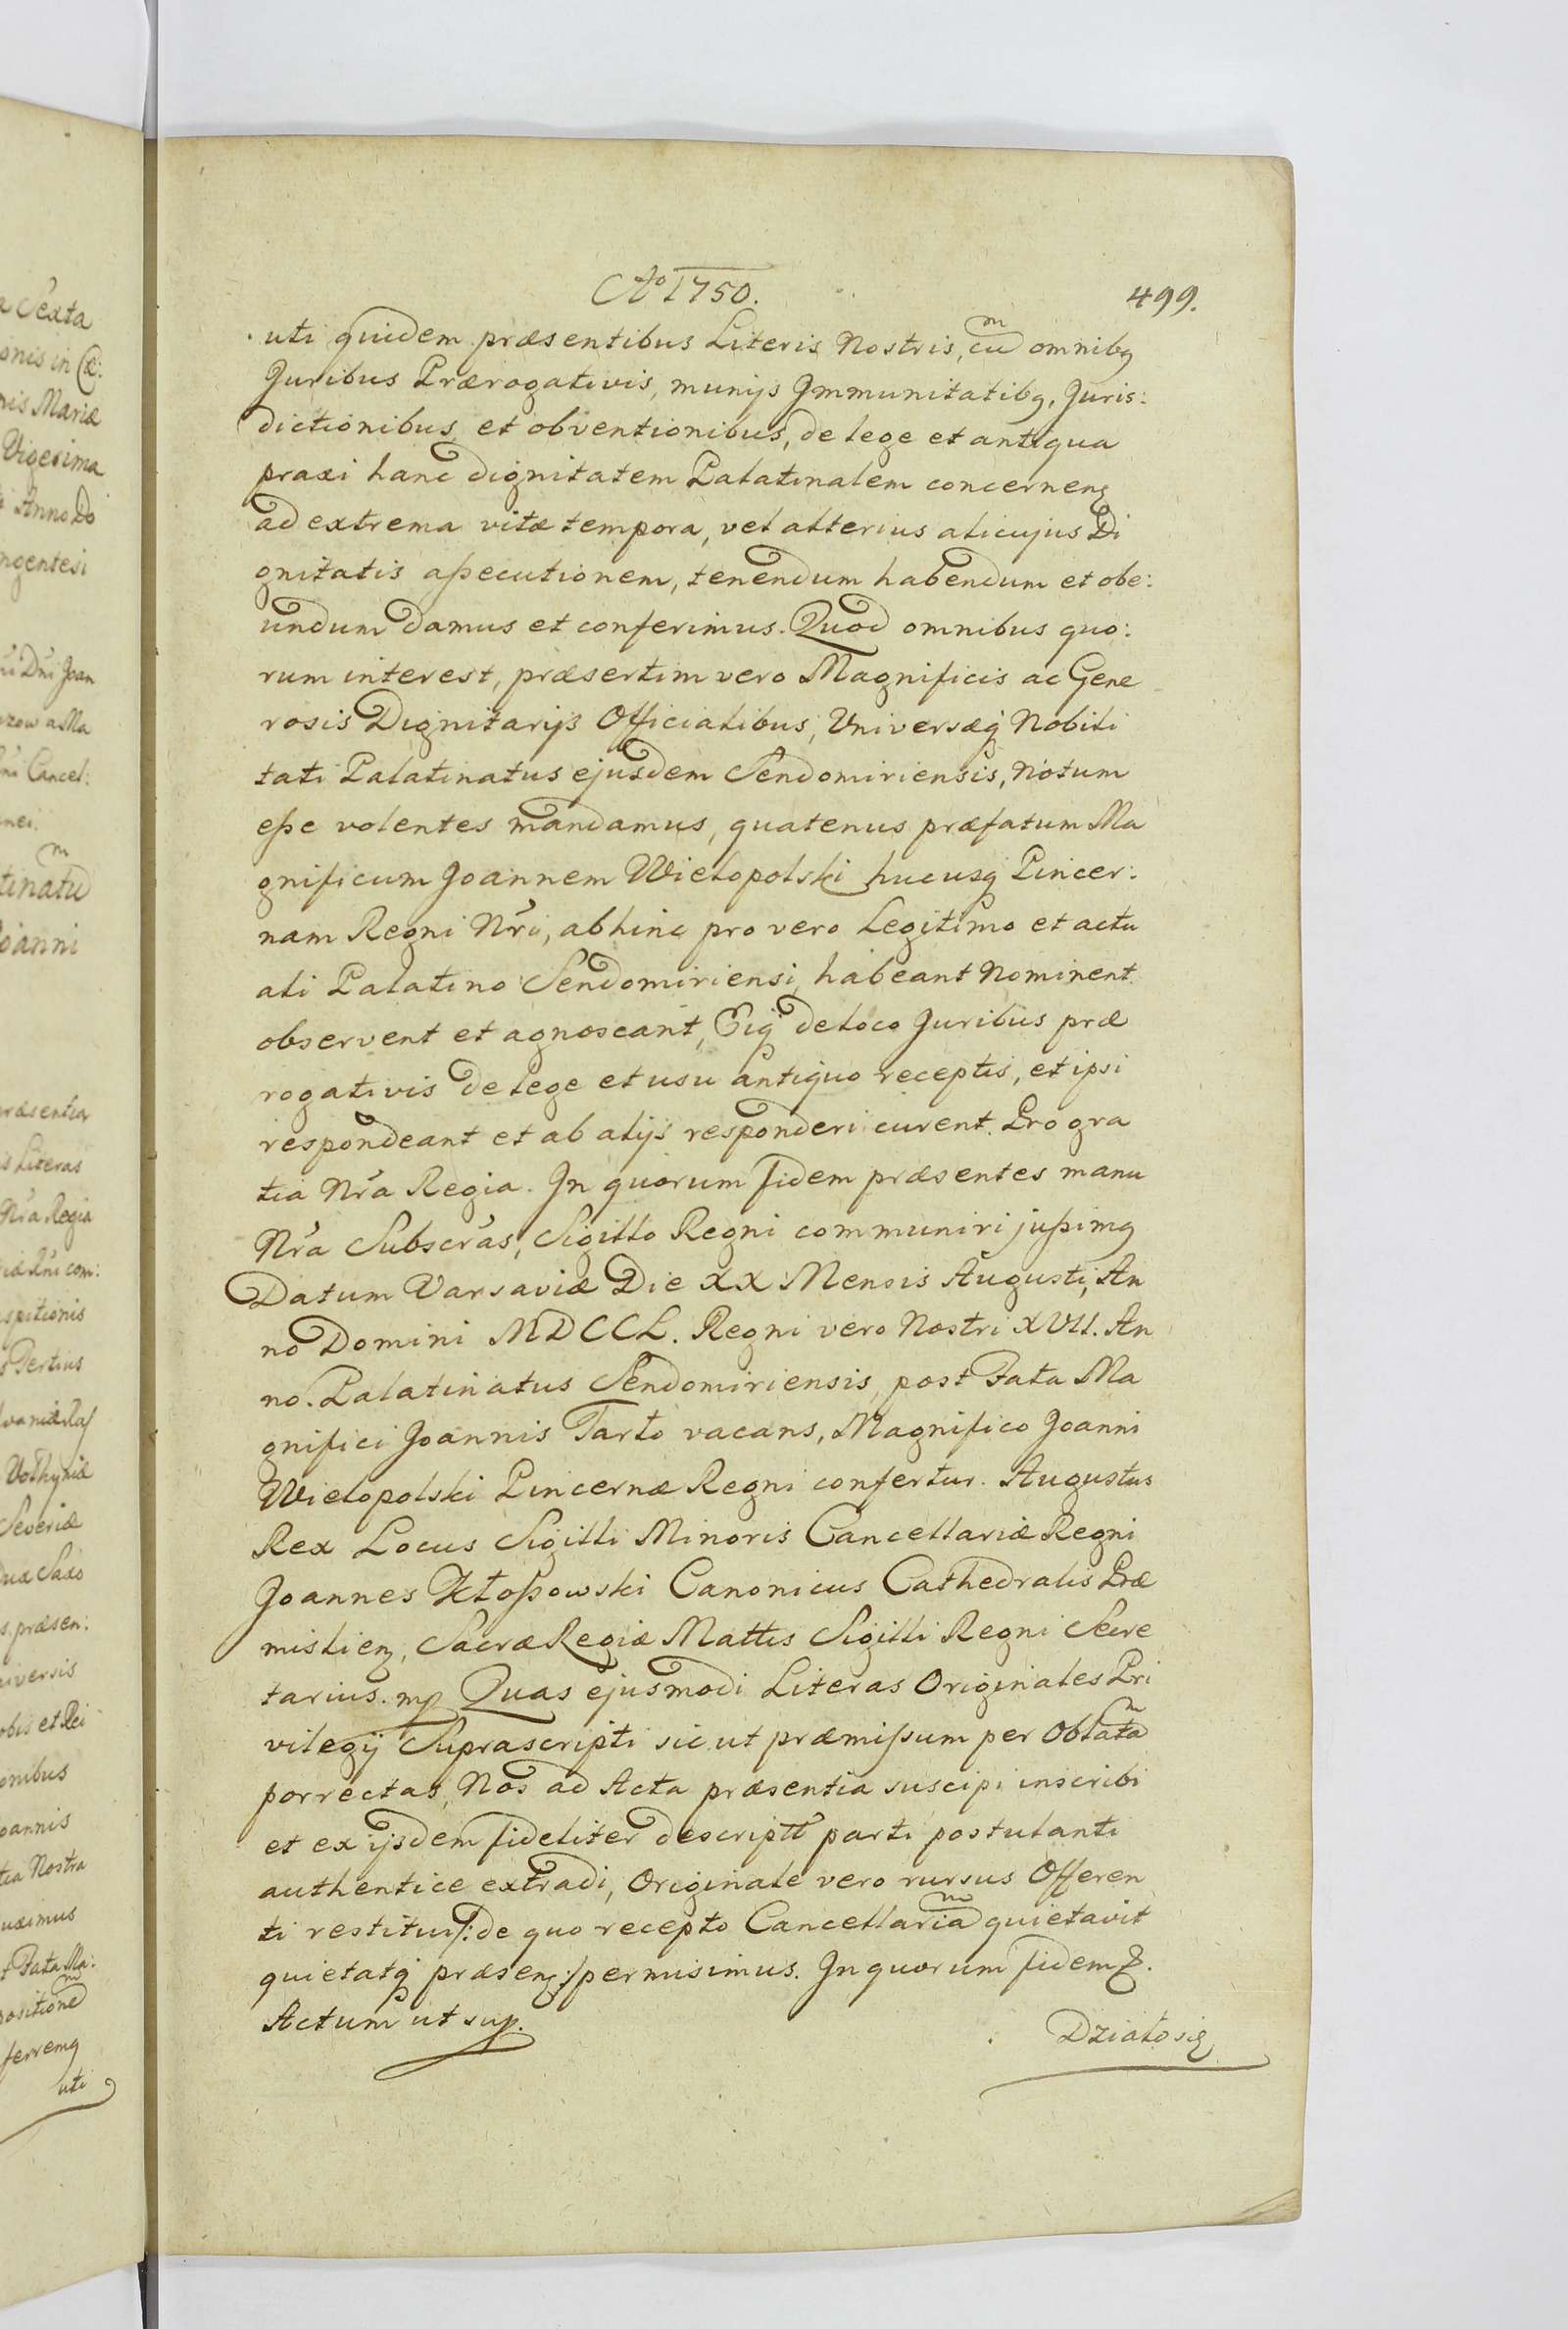 Aº 1750.
499.
uti quidem præsentibus Literis Nostris, cum omnibq
Juribus Prærogativis, munijs Jmmunitatibq, Juris:
dictionibus, et obventionibus, de lege et antiqua
praxi hanc dignitatem Palatinalem concernenꝫ
ad extrema vitæ tempora, vel alterius alicujus Di
gnitatis aßecutionem, tenendum habendum et obe:
undum damus et conferimus. Quod omnibus quo:
rum interest, præsertim vero Magnificis ac Gene
rosis Dignitarijs Officialibus, Universæq Nobili
tati Palatinatus ejusdem Sendomiriensis, Notum
eße volentes mandamus, quatenus præfatum Ma
gnificum Joannem Wielopolski hucusq Pincer:
nam Regni Nr̃i, abhinc pro vero Legitimo et actu
ali Palatino Sendomiriensi, habeant Nominent
observent et agnoscant, Eiq de loco Juribus præ
rogativis de lege et usu antiquo receptis, et ipsi
respondeant et ab alijs responderi curent. Pro gra
tia Nr̃a Regia. Jn quorum fidem præsentes manu
Nr̃a Subscr̃as, Sigillo Regni communiri jußimq
Datum Varsaviæ Die XX Mensis Augusti, An
no Domini MDCCL. Regni vero Nostri XVII. An
no. Palatinatus Sendomiriensis, post Fata Ma
gnifici Joannis Tarło vacans, Magnifico Joanni
Wielopolski Pincernæ Regni confertur. Augustus
Rex Locus Sigilli Minoris Cancellariæ Regni
Joannes Kłoßowski Canonicus Cathedralis Præ
mislienꝫ, Sacræ Regiæ Mattis Sigilli Regni Secre
tarius. mp Quas ejusmodi Literas Originales Pri
vilegij Suprascripti sic ut præmißum per Oblatam
porrectas, Nos ad Acta præsentia suscipi inscribi
et ex ijsdem fideliter descriptt parti postulanti
authentice extradi, Originale vero rursus Offeren
ti restitui /: de quo recepto Cancellariam quietavit
quietatq præsenꝫ :/ permisimus. Jn quorum fidem &.
Actum ut sup.
Działosię